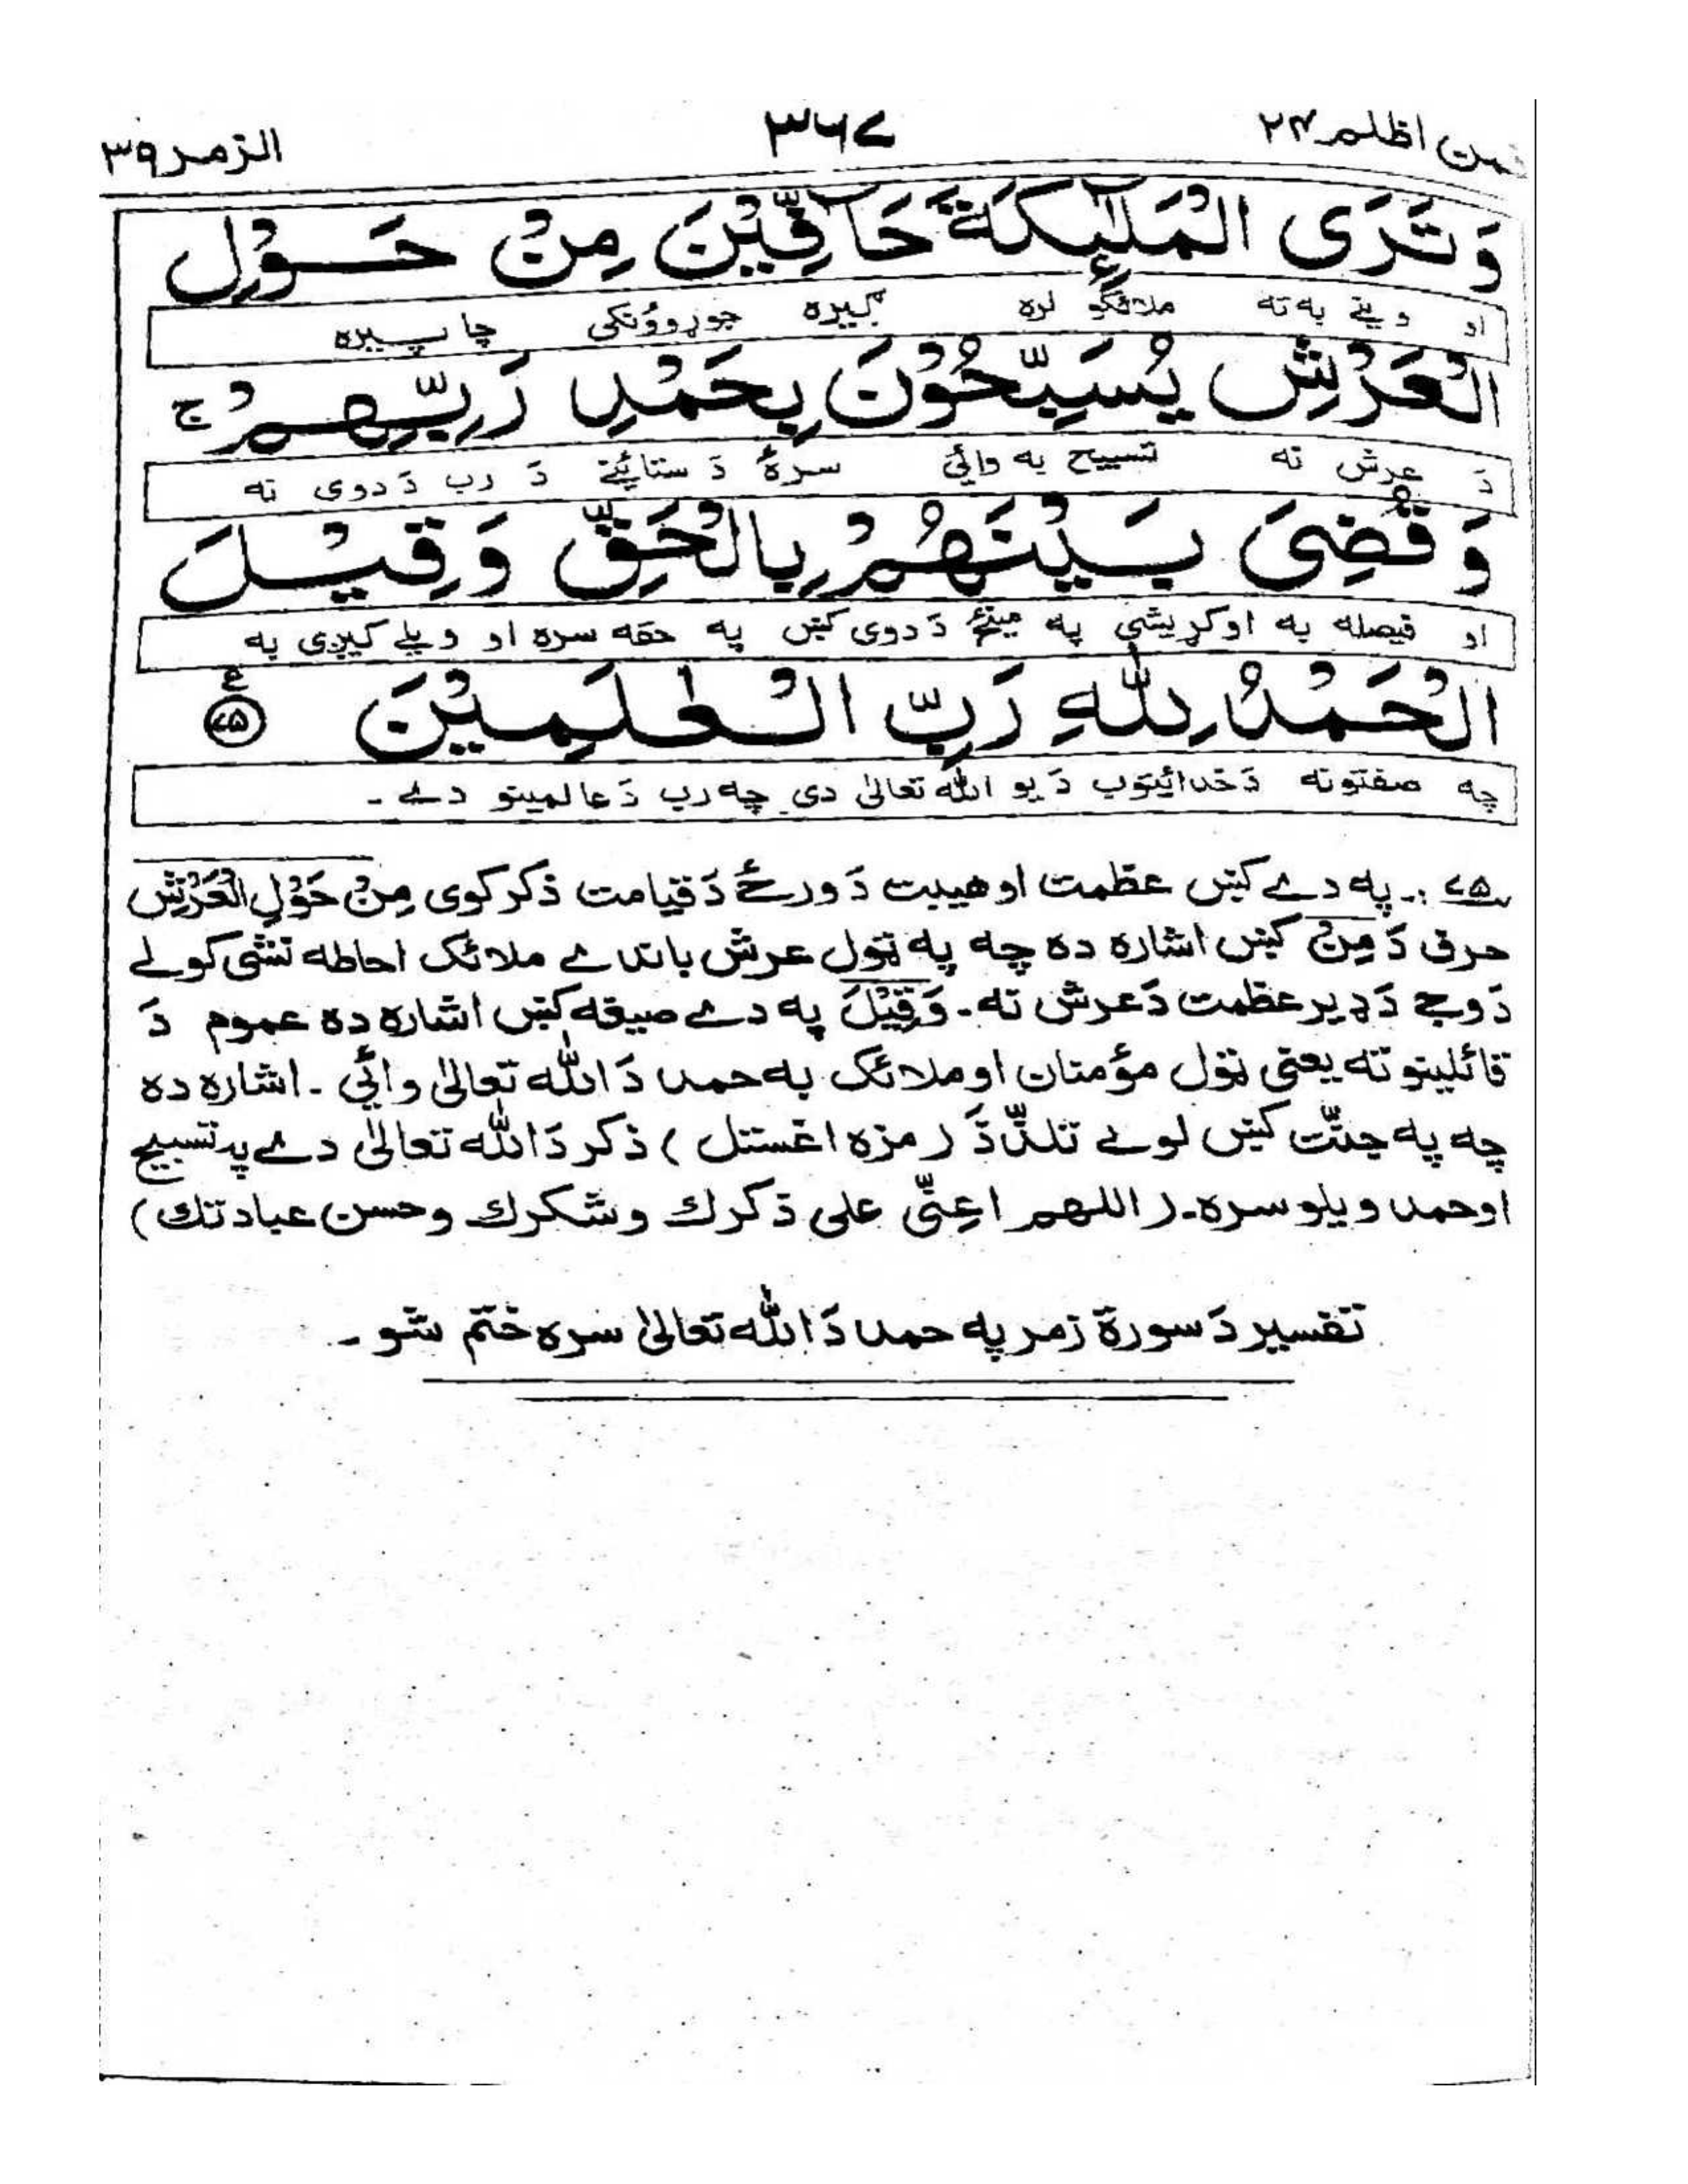 فمن اظلم ۲۴
۳۶۷
الزمر ۳۹
وَتَرَى الْمَلٰٓئِكَةَ حَآفِّيْنَ مِنْ حَوْلِ
او وينے به ته ملائكو لره گيره جوړوونكى چاپيره
الْعَرْشِ يُسَبِّحُوْنَ بِحَمْدِ رَبِّهِمْ ج
دَ عرش نه تسبيح به وائي سرهٔ دَ ستائينے دَ رب دَ دوى نه
وَقُضِىَ بَيْنَهُمْ بِالْحَقِّ وَقِيْلَ
او فيصله به اوكړيشي په مينځ دَ دوى كښ په حقه سره او ويلے كيږى به
الْحَمْدُ لِلّٰهِ رَبِّ الْعٰلَمِيْنَ ۷۵ ع
چه صفتونه دَ خدائيتوب دَ يو الله تعالىٰ دى چه رب دَ عالمينو دے ۔
۷۵ :۔ په دے كښ عظمت او هيبت دَ ورځے دَ قيامت ذكر كوى مِنْ حَوْلِ الْعَرْشِ
حرف دَ مِنْ كښ اشاره ده چه په ټول عرش باندے ملائك احاطه نشى كولے
دَ وجے دَ ډير عظمت دَ عرش نه ۔ وَقِيْلَ په دے صيغه كښ اشاره ده عموم دَ
قائلينو ته يعنى ټول مؤمنان او ملائك به حمد دَ الله تعالىٰ وائي ۔ اشاره ده
چه په جنّت كښ لوے تلذّذ ( مزه اغستل ) ذكر دَ الله تعالىٰ دے په تسبيح
او حمد ويلو سره ۔ ( اللهم اعِنّى على ذكرك وشكرك وحسن عبادتك )
تفسير دَ سورة زمر په حمد دَ الله تعالىٰ سره ختم شو ۔